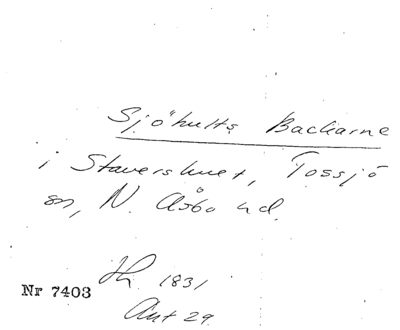 Sjöhults Backarne
i Stavershuet, Tossjö
sn, N. Åsbo hd.
1831
Nr 7403
Akt 29